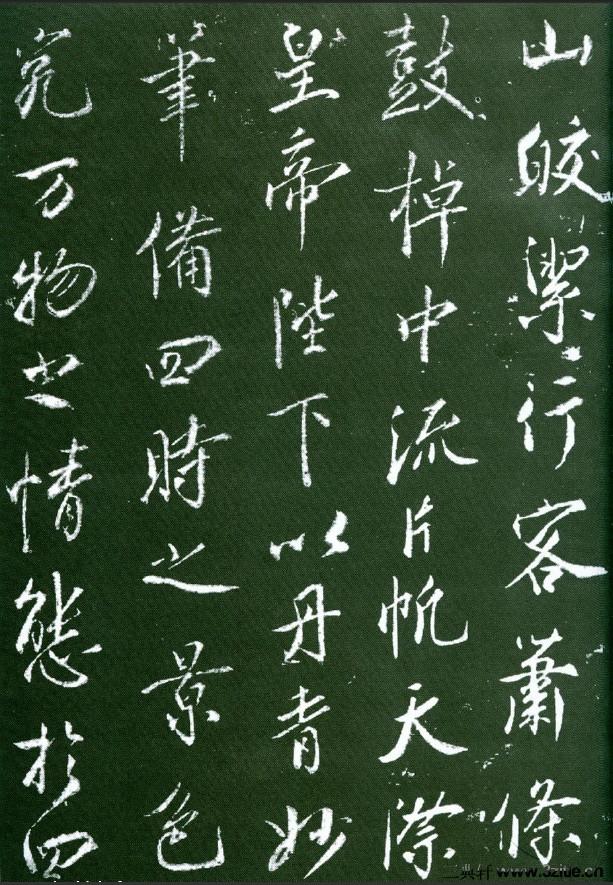 山皎潔行客蕭條
鼓棹中流片帆天際
皇帝陛下以丹青妙
筆備四時之景色
究万物之情態於四
三典轩 www.32lue.cn